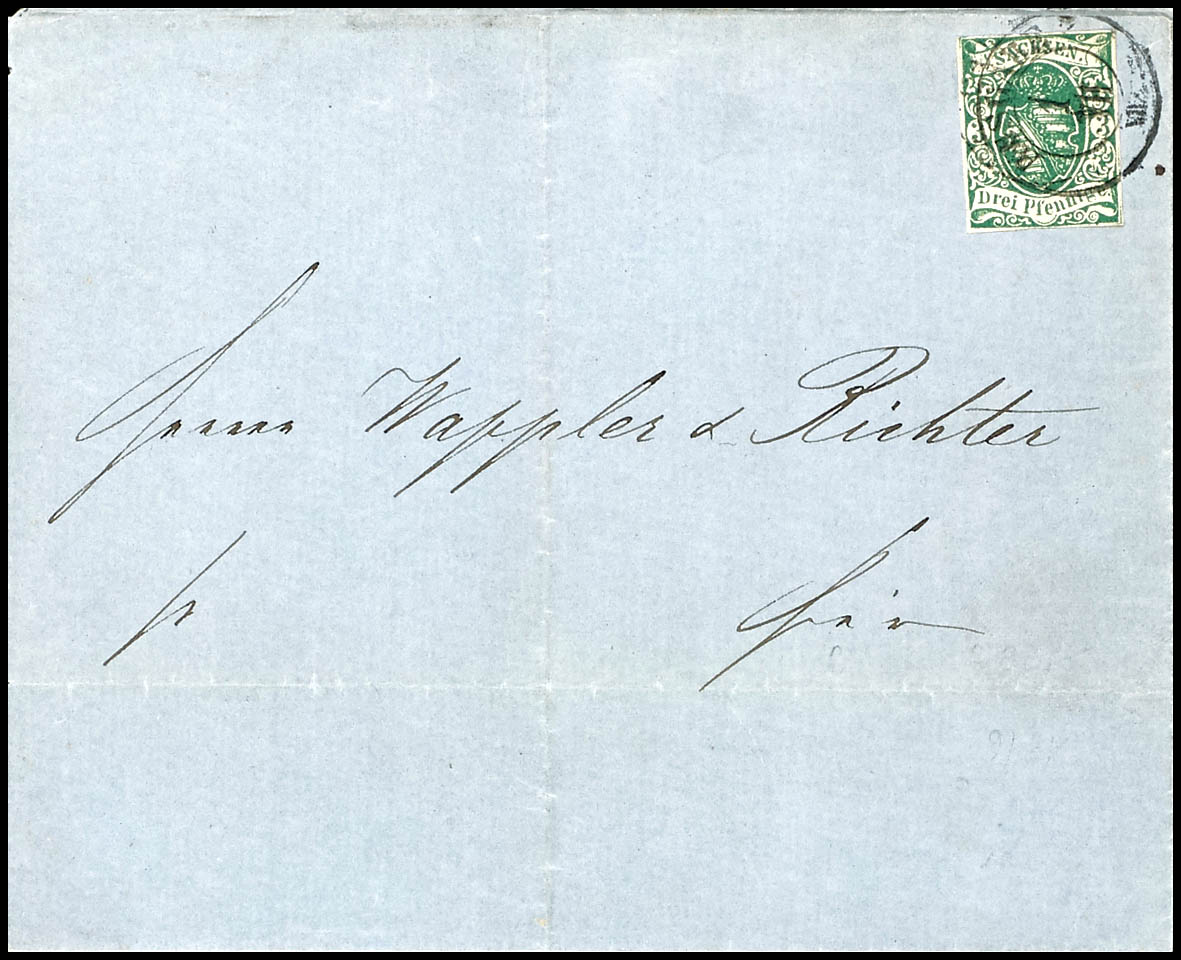 SACHSEN
3 3
Drei Pfennige
Herren Wappler & Richter
hier